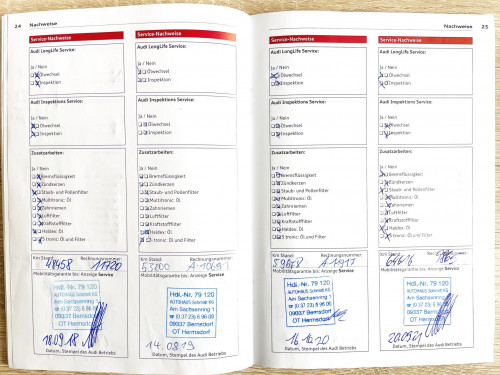 24 Nachweise
Service-Nachweise
Audi LongLife Service:
Ja / Nein
Ölwechsel
Inspektion
Audi Inspektions Service:
Ölwechsel
Inspektion
Zusatzarbeiten:
Ja / Nein
Bremsflüssigkeit
Zündkerzen
Staub- und Pollenfilter
Multitronic Öl
Zahnriemen
Luftfilter
Kraftstofffilter
Haldex Öl
S tronic Öl und Filter
Km Stand: Rechnungsnummer:
48458 11720
Mobilitätsgarantie bis: Anzeige Service
Hdl.-Nr. 79 120
AUTOHAUS Schmidt KG
Am Sachsenring 1
(0 37 23) 6 96 09
09337 Bernsdorf
OT Hermsdorf
18.09.18
Datum, Stempel des Audi Betriebs
Service-Nachweise
Audi LongLife Service:
Ja / Nein
Ölwechsel
Inspektion
Audi Inspektions Service:
Ölwechsel
Inspektion
Zusatzarbeiten:
Ja / Nein
Bremsflüssigkeit
Zündkerzen
Staub- und Pollenfilter
Multitronic Öl
Zahnriemen
Luftfilter
Kraftstofffilter
Haldex Öl
S tronic Öl und Filter
Km Stand: Rechnungsnummer:
53200
Mobilitätsgarantie bis: Anzeige Service
Hdl.-Nr. 79 120
AUTOHAUS Schmidt KG
Am Sachsenring 1
(0 37 23) 6 96 09
09337 Bernsdorf
OT Hermsdorf
14.08.19
Datum, Stempel des Audi Betriebs
Nachweise 25
Service-Nachweise
Audi LongLife Service:
Ja / Nein
Ölwechsel
Inspektion
Audi Inspektions Service:
Ölwechsel
Inspektion
Zusatzarbeiten:
Ja / Nein
Bremsflüssigkeit
Zündkerzen
Staub- und Pollenfilter
Multitronic Öl
Zahnriemen
Luftfilter
Kraftstofffilter
Haldex Öl
S tronic Öl und Filter
Km Stand: Rechnungsnummer:
Mobilitätsgarantie bis: Anzeige Service
Hdl.-Nr. 79 120
AUTOHAUS Schmidt KG
Am Sachsenring 1
(0 37 23) 6 96 09
09337 Bernsdorf
OT Hermsdorf
16.10.20
Datum, Stempel des Audi Betriebs
Service-Nachweise
Audi LongLife Service:
Ja / Nein
Ölwechsel
Inspektion
Audi Inspektions Service:
Ölwechsel
Inspektion
Zusatzarbeiten:
Ja / Nein
Bremsflüssigkeit
Zündkerzen
Staub- und Pollenfilter
Multitronic Öl
Zahnriemen
Luftfilter
Kraftstofffilter
Haldex Öl
S tronic Öl und Filter
Km Stand:
64616
Mobilitätsgarantie bis: Anzeige Service
Hdl.-Nr. 79 120
AUTOHAUS Schmidt KG
Am Sachsenring 1
(0 37 23) 6 96 09
09337 Bernsdorf
OT Hermsdorf
20.09.21
Datum, Stempel des Audi Betriebs